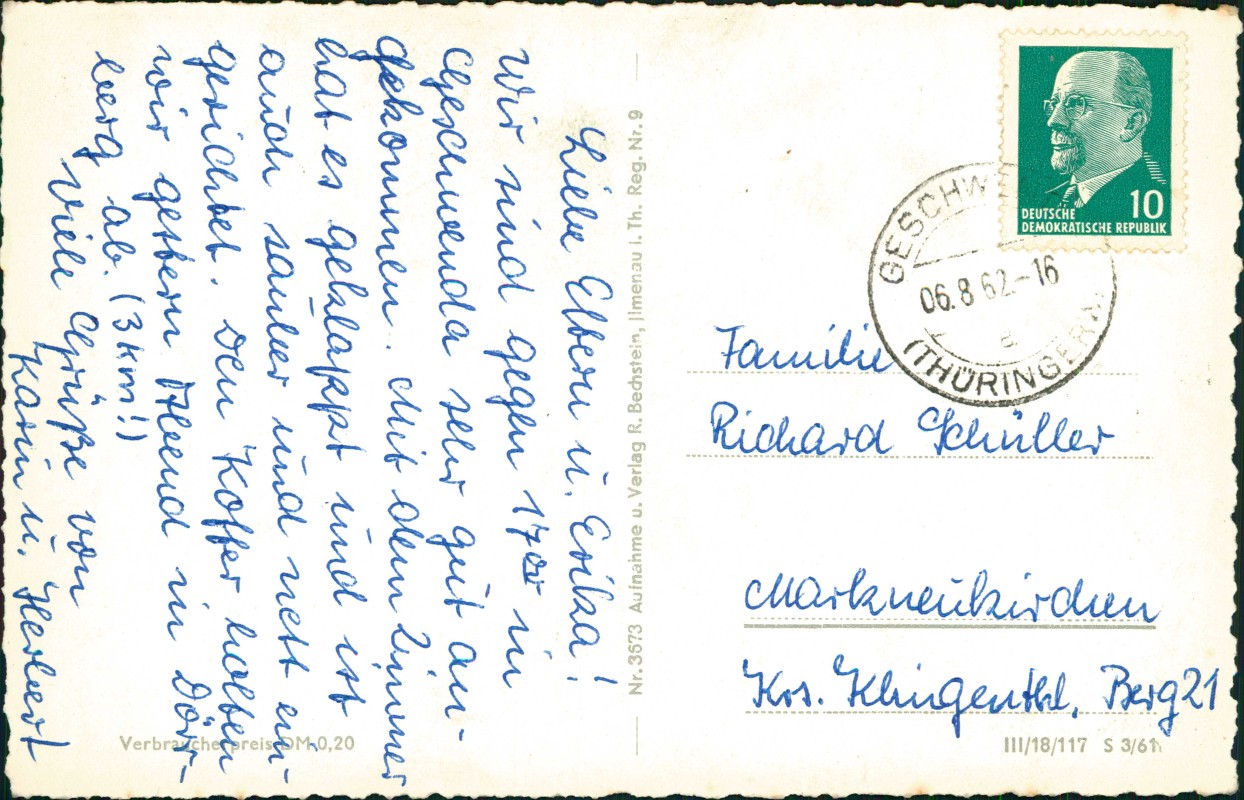 Liebe Eltern u. Erika!
Wir sind gegen 17⁰⁰ in
Geschwenda sehr gut an-
gekommen. Mit dem Zimmer
hat es geklappt und ist
auch sauber und nett ein-
gerichtet. Den Koffer holten
wir gestern Abend in Dörr-
berg ab. (3 km!)
Viele Grüße von
Karin u. Herbert
Nr. 3673 Aufnahme u. Verlag R. Bechstein, Jlmenau i. Th. Reg. Nr. 9
Verbraucherpreis DM 0,20
10
DEUTSCHE
DEMOKRATISCHE REPUBLIK
GESCHW
06.8 62-16
a
(THÜRINGERW
Familie
Richard Schüller
Markneukirchen
Krs. Klingenthl, Berg 21
III/18/117 S 3/61